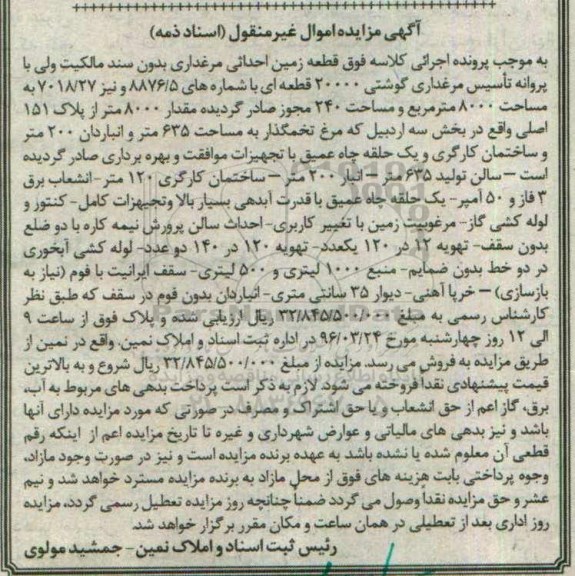 آگهی مزایده اموال غیرمنقول (اسناد ذمه)
به موجب پرونده اجرائی کلاسه فوق قطعه زمین احداثی مرغداری بدون سند مالکیت ولی با
پروانه تأسیس مرغداری گوشتی ۲۰۰۰۰ قطعه ای با شماره های ۸۸۷۶/۵ و نیز ۷۰۱۸/۲۷ به
مساحت ۸۰۰۰ مترمربع و مساحت ۲۴۰ مجوز صادر گردیده مقدار ۸۰۰۰ متر از پلاک ۱۵۱
اصلی واقع در بخش سه اردبیل که مرغ تخمگذار به مساحت ۶۳۵ متر و انباردان ۲۰۰ متر
و ساختمان کارگری و یک حلقه چاه عمیق با تجهیزات موافقت و بهره برداری صادر گردیده
است – سالن تولید ۶۳۵ متر – انبار ۲۰۰ متر – ساختمان کارگری ۱۲۰ متر-انشعاب برق
۳ فاز و ۵۰ آمپر- یک حلقه چاه عمیق با قدرت آبدهی بسیار بالا وتجهیزات کامل- کنتور و
لوله کشی گاز- مرغوبیت زمین با تغییر کاربری- احداث سالن پرورش نیمه کاره با دو ضلع
بدون سقف- تهویه ۱۲ در ۱۲۰ یکعدد- تهویه ۱۲۰ در ۱۴۰ دو عدد- لوله کشی آبخوری
در دو خط بدون ضمایم- منبع ۱۰۰۰ لیتری و ۵۰۰ لیتری- سقف ایرانیت با فوم (نیاز به
بازسازی) – خرپا آهنی- دیوار ۳۵ سانتی متری- انباردان بدون فوم در سقف که طبق نظر
کارشناس رسمی به مبلغ ۳۲/۸۴۵/۵۰۰/۰۰۰ ریال ارزیابی شده و پلاک فوق از ساعت ۹
الی ۱۲ روز چهارشنبه مورخ ۹۶/۰۳/۲۴ در اداره ثبت اسناد و املاک نمین واقع در نمین از
طریق مزایده به فروش می رسد. مزایده از مبلغ ۳۲/۸۴۵/۵۰۰/۰۰۰ ریال شروع و به بالاترین
قیمت پیشنهادی نقداً فروخته می شود. لازم به ذکر است پرداخت بدهی های مربوط به آب،
برق، گاز اعم از حق انشعاب و یا حق اشتراک و مصرف در صورتی که مورد مزایده دارای آنها
باشد و نیز بدهی های مالیاتی و عوارض شهرداری و غیره تا تاریخ مزایده اعم از اینکه رقم
قطعی آن معلوم شده یا نشده باشد به عهده برنده مزایده است و نیز در صورت وجود مازاد،
وجوه پرداختی بابت هزینه های فوق از محل مازاد به برنده مزایده مسترد خواهد شد و نیم
عشر و حق مزایده نقداً وصول می گردد ضمناً چنانچه روز مزایده تعطیل رسمی گردد، مزایده
روز اداری بعد از تعطیلی در همان ساعت و مکان مقرر برگزار خواهد شد.
رئیس ثبت اسناد و املاک نمین- جمشید مولوی